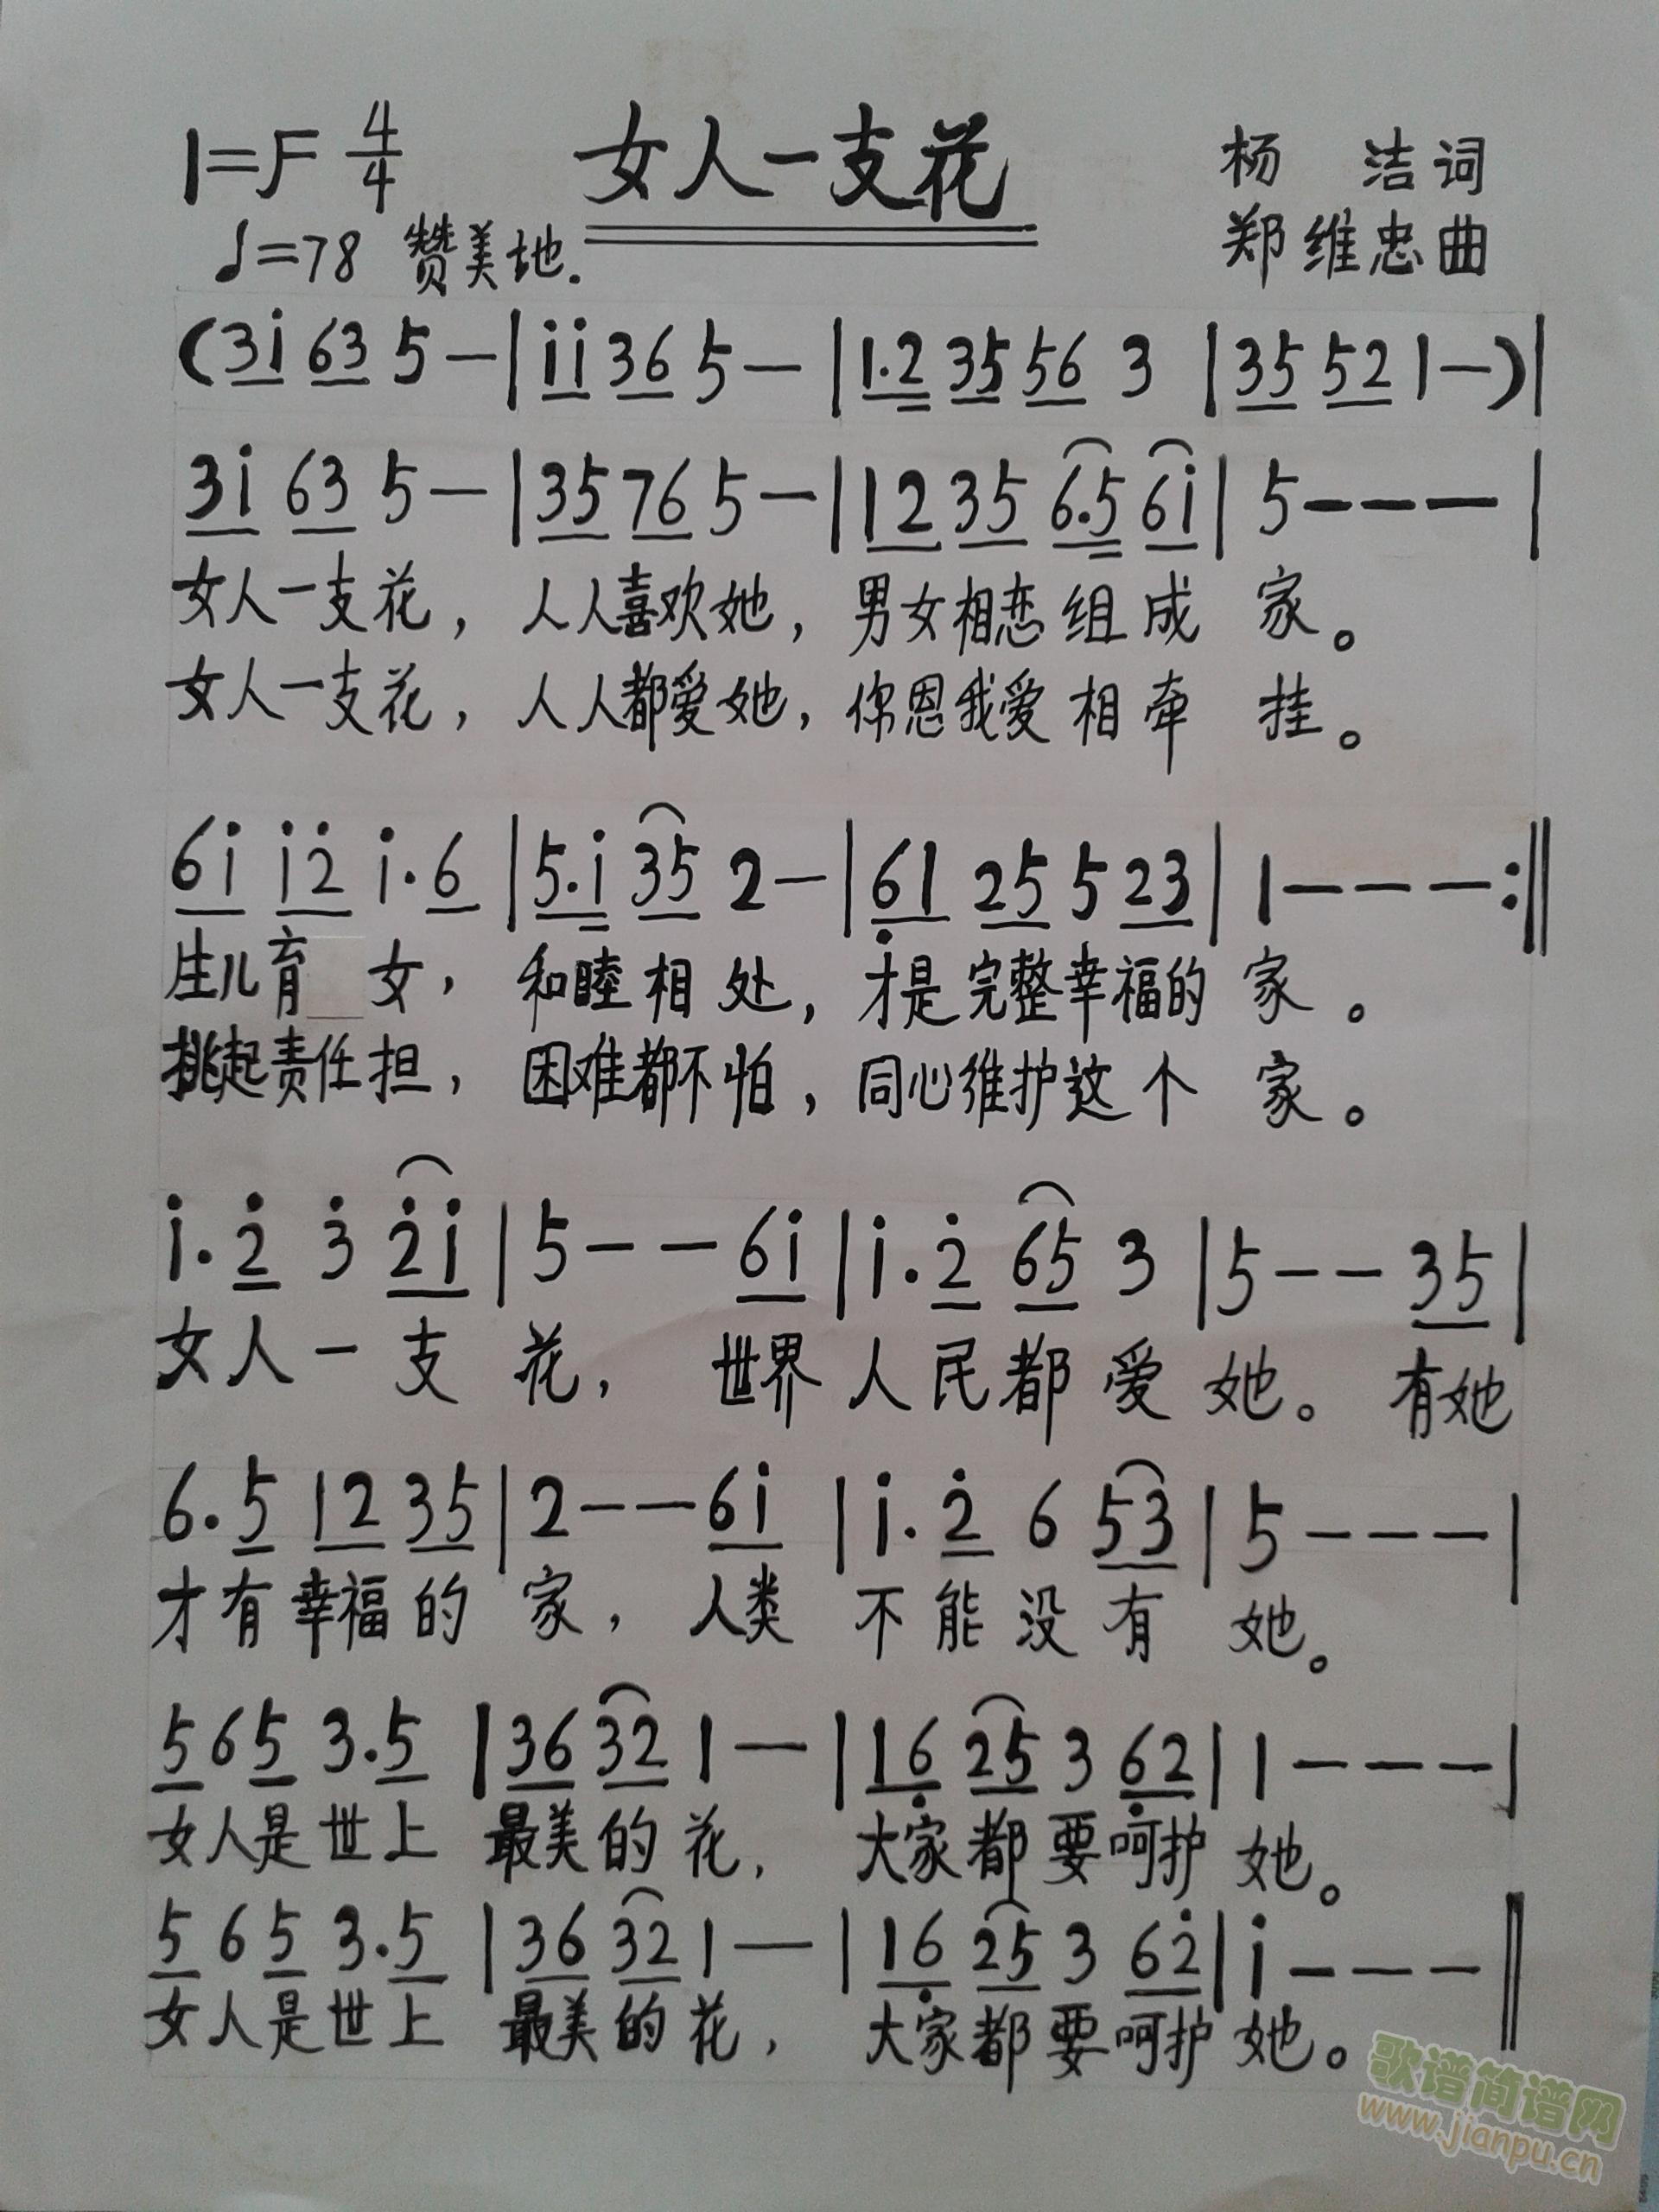 1=F 4/4 女人一支花 杨 洁词
♩=78 赞美地. 郑维忠曲
(3i̇ 63 5 — | i̇i̇ 36 5 — | 1.2 35 56 3 | 35 52 1 —) |
3i̇ 63 5 — | 35 76 5 — | 12 35 6.5 6i̇ | 5 — — — |
女人一支花，人人喜欢她，男女相恋组成 家。
女人一支花，人人都爱她，你恩我爱相牵 挂。
6i̇ i̇2̇ i̇.6 | 5.i̇ 35 2 — | 6̣1 25 5 23 | 1 — — — :‖
生儿育 女，和睦相处，才是完整幸福的 家。
挑起责任担，困难都不怕，同心维护这个 家。
i̇.2̇ 3̇ 2̇i̇ | 5 — — 6i̇ | i̇.2̇ 65 3 | 5 — — 35 |
女人一支 花， 世界人民都爱她。 有她
6.5 12 35 | 2 — — 6i̇ | i̇.2̇ 6 53 | 5 — — — |
才有幸福的 家， 人类 不能没有 她。
5 6 5 3.5 | 36 32 1 — | 16̣ 25 3 6̣2 | 1 — — — |
女人是世上 最美的花， 大家都要呵护 她。
5 6 5 3.5 | 36 32 1 — | 16̣ 25 3 62̇ | i̇ — — — ‖
女人是世上 最美的花， 大家都要呵护 她。
歌谱简谱网
www.jianpu.cn